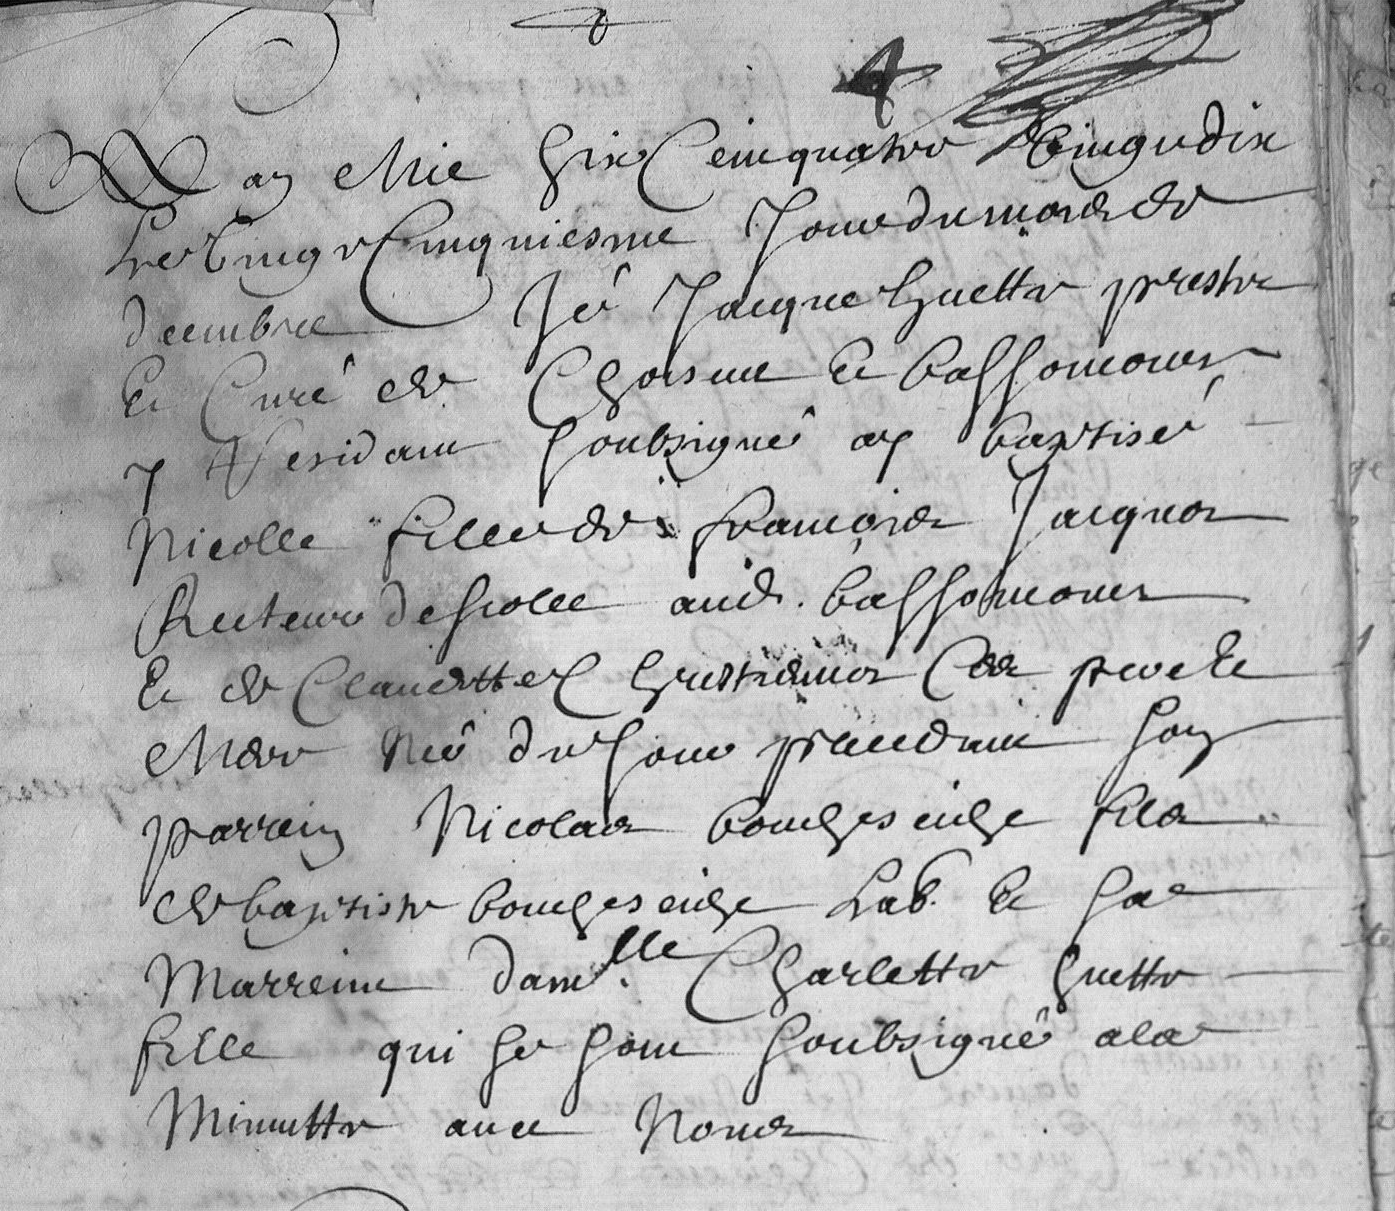 4
Lan Mil Six Cent quatre Vingt dix
Le Vingt Cinquiesme Jour du mois de
decembre Je Jacque huette prestre
Et Curé de Choisme Et bassoncour
y Residant soubsigné ay baptisé
Nicolle fille de francois Jacquot
Recteur descolle aud. bassoncour
Et de Claudette Ses pere Et
Mere Né du Jour precedent son
parrein Nicolas bongeseuge fils
de baptiste bongeseuge Lab. Et sa
Marreine dam.lle Charlette huette
fille qui se sont soubsigné a la
Minutte avec Nous